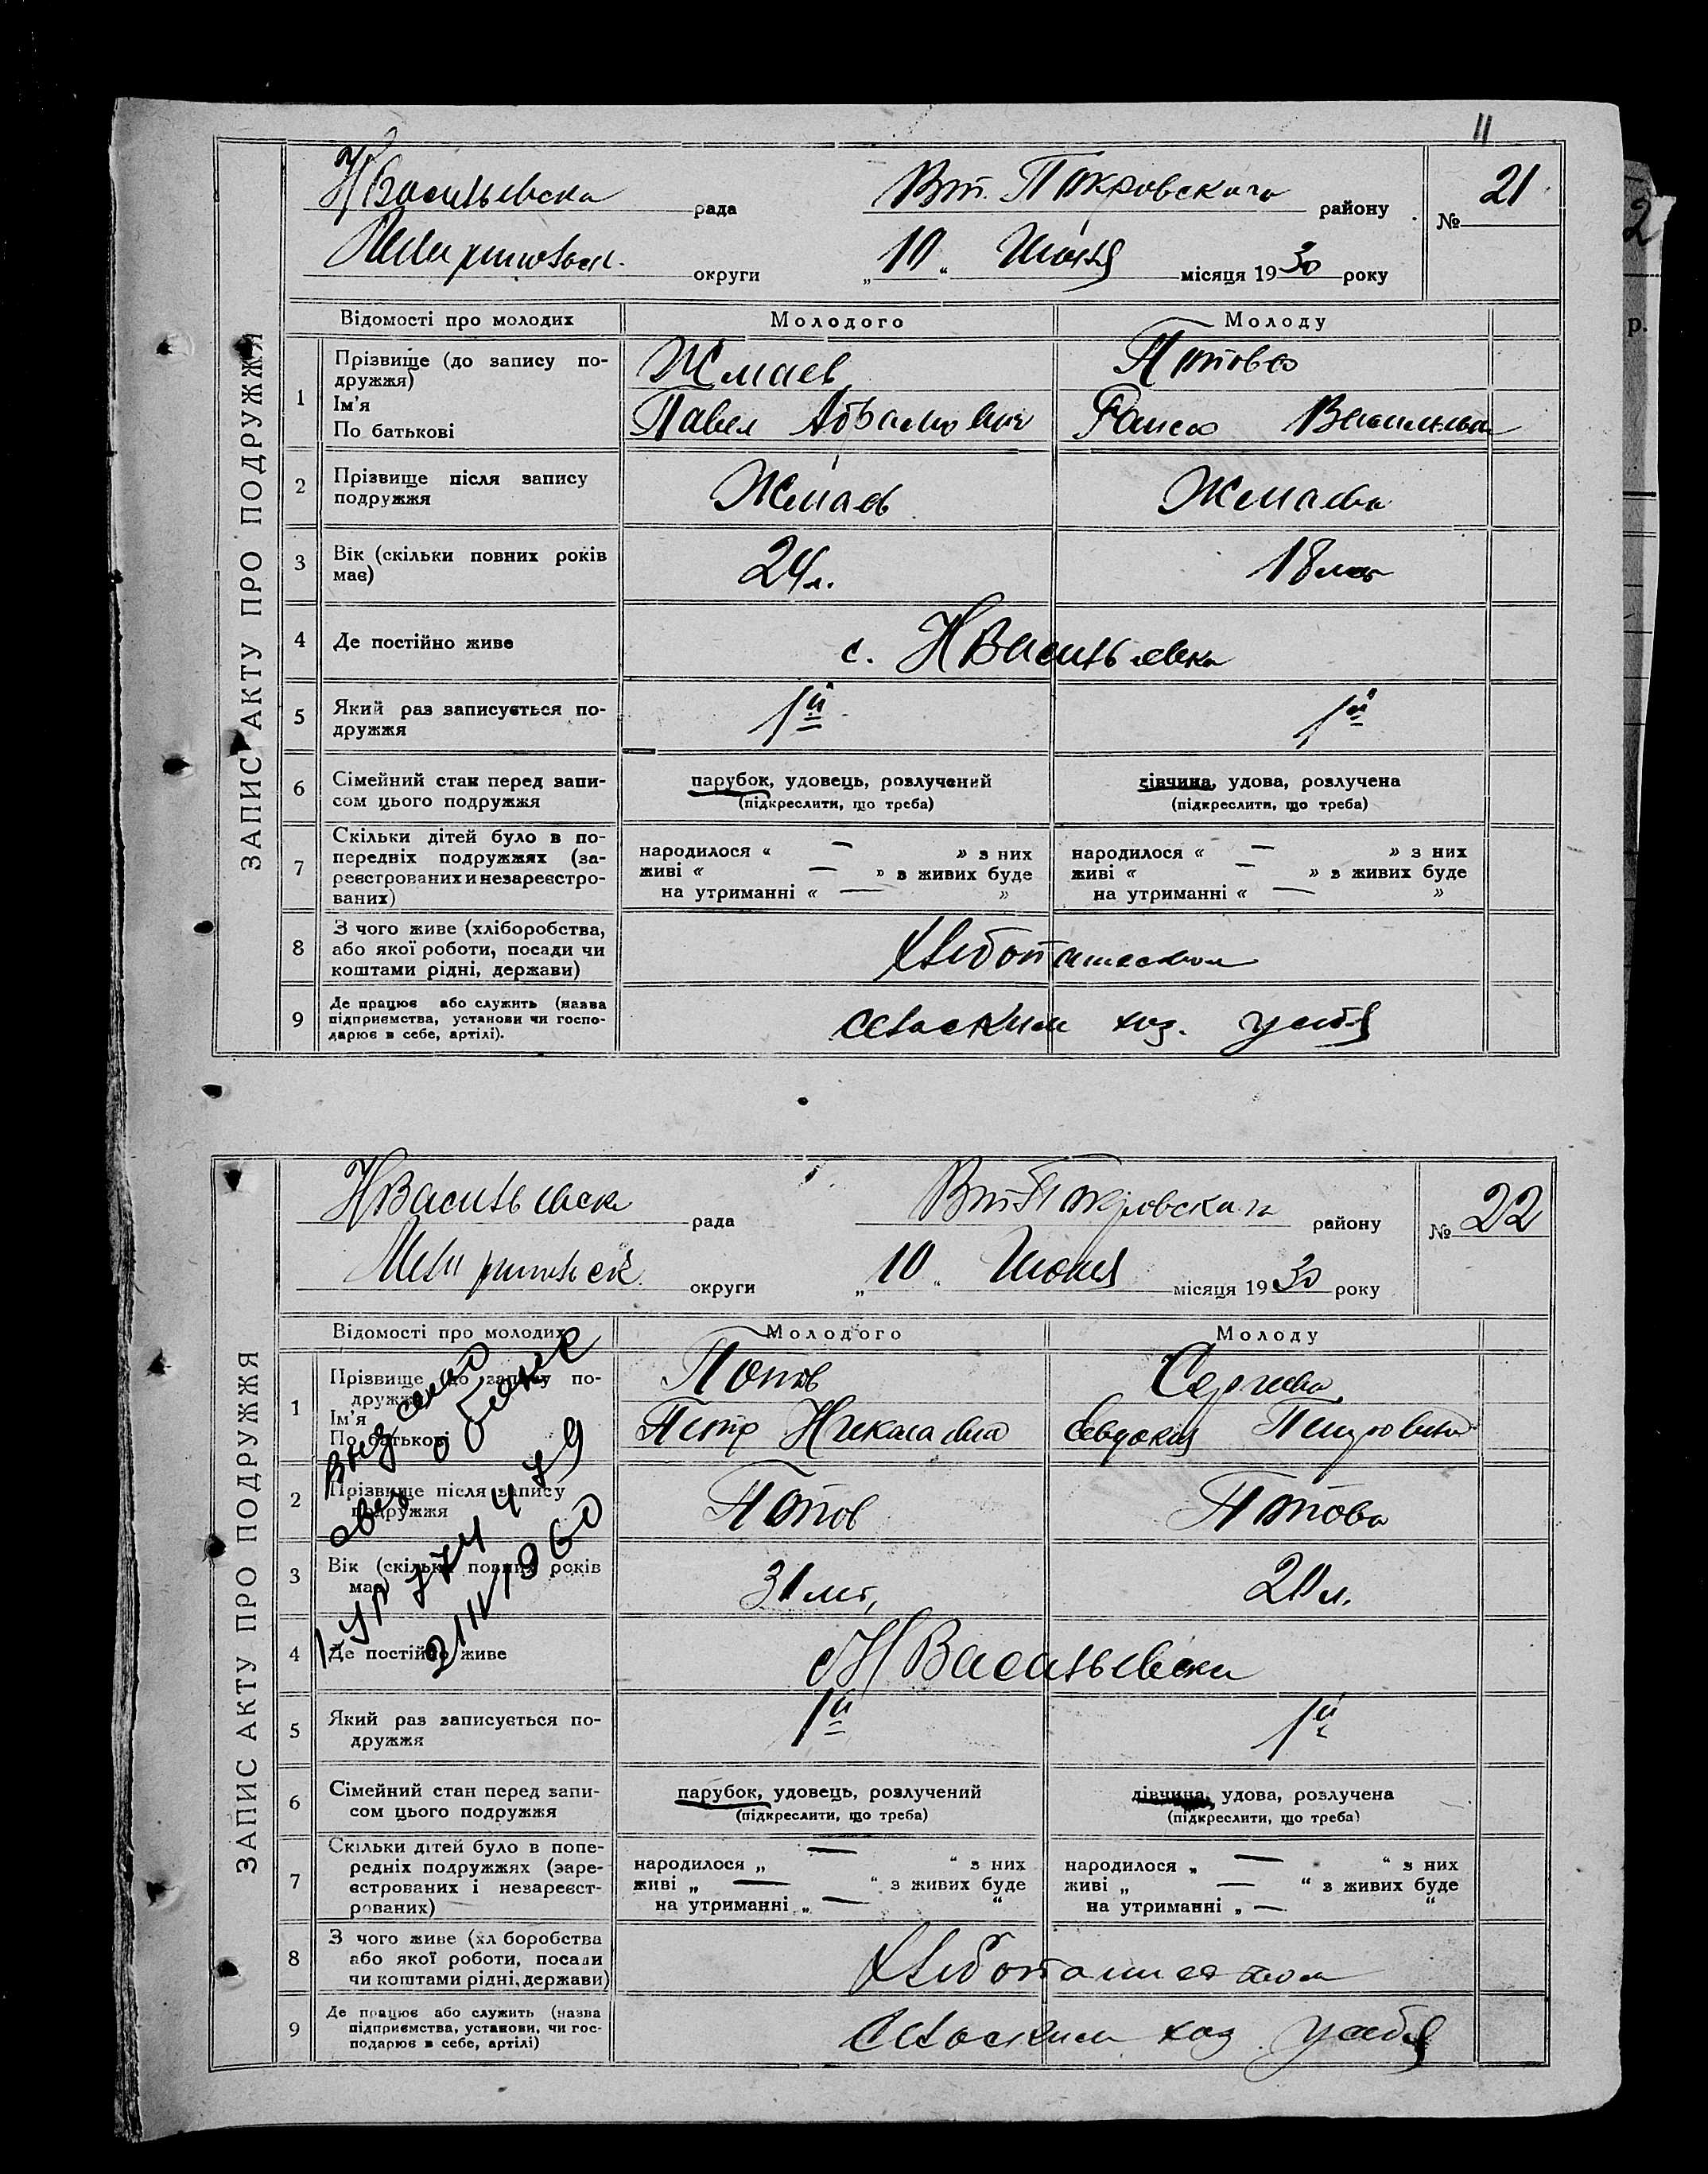 11
НВасильевска рада Вт. Покровского району № 21
Мелитопольск. округи „10“ Июня місяця 1930 року
ЗАПИС АКТУ ПРО ПОДРУЖЖЯ
Відомості про молодих Молодого Молоду
1 Прізвище (до запису по-
дружжя)
Ім'я
По батькові
Жмаев Попова
Павел Абрамович Раиса Васильевна
2 Прізвище після запису
подружжя
Жмаев Жмаева
3 Вік (скільки повних років
має)
24 л. 18 лет
4 Де постійно живе с. НВасильевка
5 Який раз записується по-
дружжя
1й 1й
6 Сімейний стан перед запи-
сом цього подружжя
парубок, удовець, розлучений дівчина, удова, розлучена
(підкреслити, що треба) (підкреслити, що треба)
7 Скільки дітей було в по-
передніх подружжях (за-
реєстрованих и незареєстро-
ваних)
народилося « — » з них народилося « — » з них
живі « — » з живих буде живі « — » з живих буде
на утриманні « — » на утриманні « — »
8 З чого живе (хліборобства,
або якої роботи, посади чи
коштами рідні, держави)
Хлебопашеством
9 Де працює або служить (назва
підприємства, установи чи госпо-
дарює в себе, артілі).
сельским хоз. у себя
НВасильевска рада Вт Покровского району № 22
Мелитопольск округи „10“ Июня місяця 1930 року
ЗАПИС АКТУ ПРО ПОДРУЖЖЯ
Відомості про молодих Молодого Молоду
1 Прізвище до запису по-
дружжя
Ім'я
По батькові
Попов Сергиева
Петр Николаевич Евдокия Петровна
2 Прізвище після запису
подружжя
Попов Попова
3 Вік (скільки повних років
має)
31 лет, 20 л.
4 Де постійно живе с НВасильевки
5 Який раз записується по-
дружжя
1й 1й
6 Сімейний стан перед запи-
сом цього подружжя
парубок, удовець, розлучений дівчина, удова, розлучена
(підкреслити, що треба) (підкреслити, що треба)
7 Скільки дітей було в попе-
редніх подружжях (заре-
єстрованих і незареєст-
рованих)
народилося „ — “ з них народилося „ — “ з них
живі „ — “ з живих буде живі „ — “ з живих буде
на утриманні „ — “ на утриманні „ — “
8 З чого живе (хл боробства
або якої роботи, посади
чи коштами рідні, держави)
Хлебопашеством
9 Де працює або служить (назва
підприємства, установи, чи гос-
подарює в себе, артілі)
Сельским хоз. у себя
о браке